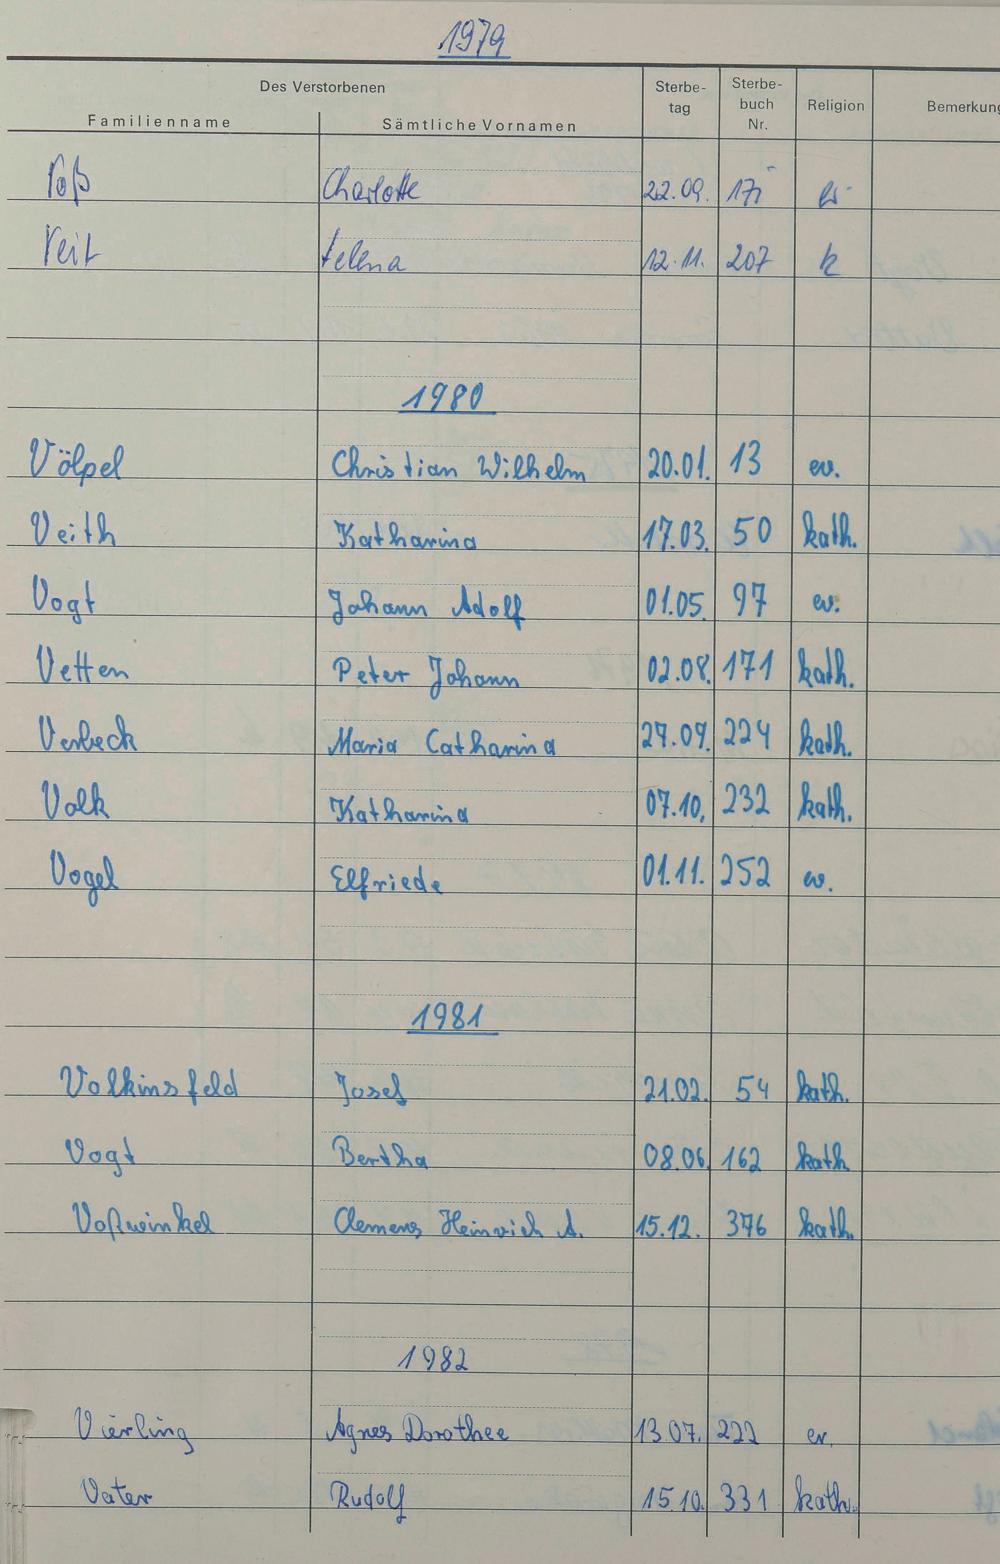 1979
Des Verstorbenen
Familienname Sämtliche Vornamen Sterbe-tag Sterbe-buch Nr. Religion Bemerkung
Voß Charlotte 22.09. ev
Veit Helena 12.11. 207 k
1980
Völpel Christian Wilhelm 20.01. 13 ev.
Veith Katharina 17.03. 50 kath.
Vogt Johann Adolf 01.05. 97 ev.
Vetten Peter Johann 02.08. 171 kath.
Verbeck Maria Catharina 27.09. 224 kath.
Volk Katharina 07.10. 232 kath.
Vogel Elfriede 01.11. 252 ev.
1981
Volkinsfeld Josef 21.02. 54 kath.
Vogt Bertha 08.06. 162 kath
Voßwinkel Clemens Heinrich A. 15.12. 376 kath.
1982
Vierling Agnes Dorothee 13.07. 222 ev.
Vater Rudolf 15.10. 331 kath.